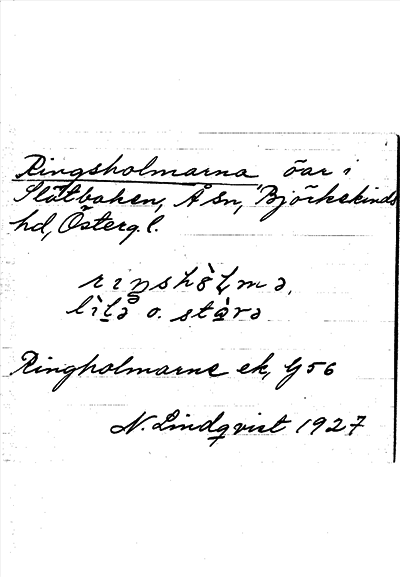 Ringsholmarna öar i
Slätbaken, Å sn, Björkekinds
hd, Österg. l.
rinshòlmə,
lìlə o. stàrə
Ringholmarne ek, G 56
N. Lindqvist 1927